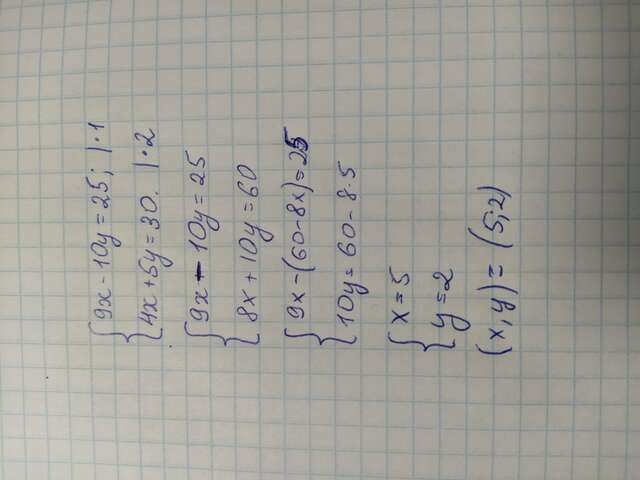 9x-10y=25; |·1
4x+5y=30. |·2
9x-10y=25
8x+10y=60
9x-(60-8x)=25
10y=60-8·5
x=5
y=2
(x,y)=(5;2)